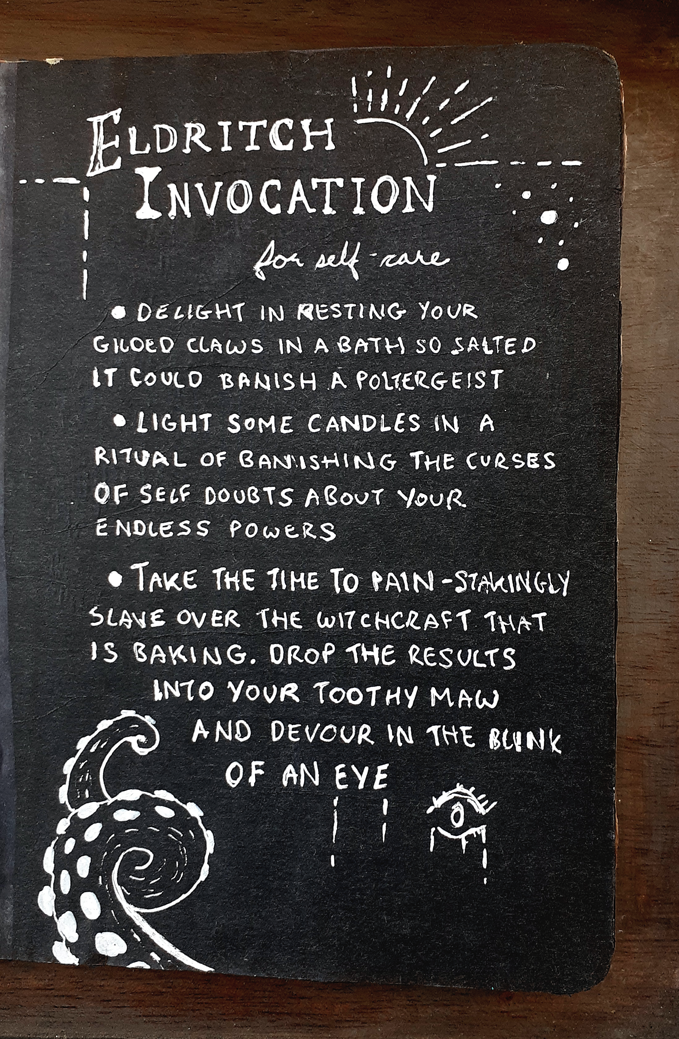 ELDRITCH
INVOCATION
for self-care
• DELIGHT IN RESTING YOUR
GILDED CLAWS IN A BATH SO SALTED
IT COULD BANISH A POLTERGEIST
• LIGHT SOME CANDLES IN A
RITUAL OF BANISHING THE CURSES
OF SELF DOUBTS ABOUT YOUR
ENDLESS POWERS
• TAKE THE TIME TO PAIN-STAKINGLY
SLAVE OVER THE WITCHCRAFT THAT
IS BAKING. DROP THE RESULTS
INTO YOUR TOOTHY MAW
AND DEVOUR IN THE BLINK
OF AN EYE